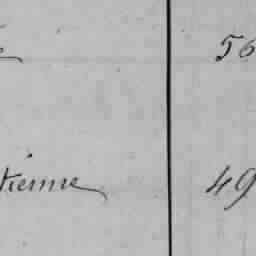 56
tienne 49